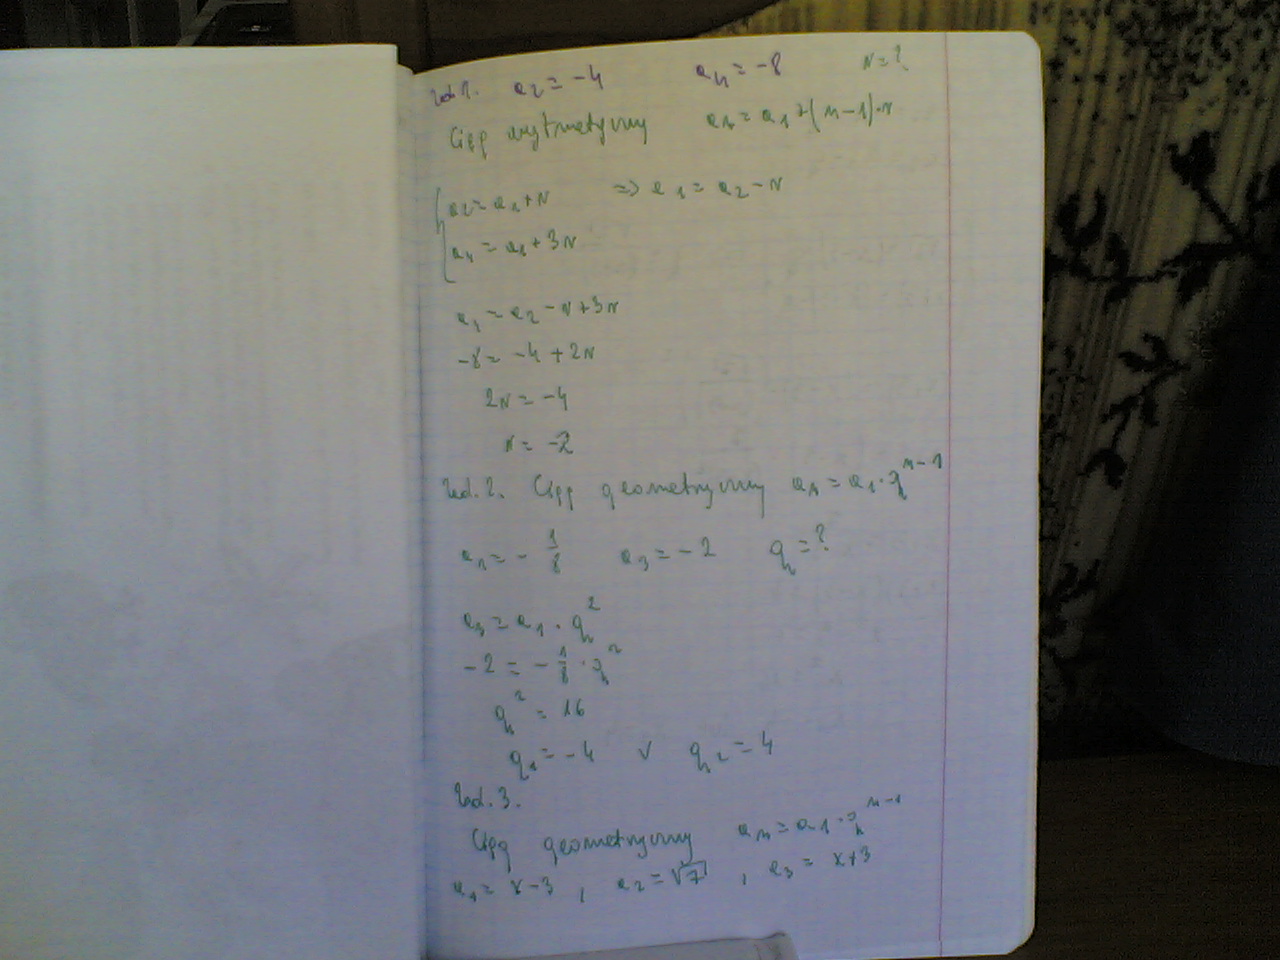 Zad.1. a₂ = -4 a₄ = -8 r = ?
Ciąg arytmetyczny aₙ = a₁ + (n-1)·r
a₂ = a₁ + r => a₁ = a₂ - r
a₄ = a₁ + 3r
a₄ = a₂ - r + 3r
-8 = -4 + 2r
2r = -4
r = -2
Zad.2. Ciąg geometryczny aₙ = a₁·qⁿ⁻¹
a₁ = -1/8 a₃ = -2 q = ?
a₃ = a₁ · q²
-2 = -1/8 · q²
q² = 16
q₁ = -4 v q₂ = 4
Zad.3.
Ciąg geometryczny aₙ = a₁·qⁿ⁻¹
a₁ = x-3 , a₂ = √7 , a₃ = x+3